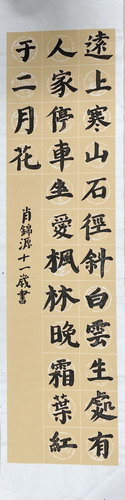 遠上寒山石徑斜白雲生處有
人家停車坐愛楓林晚霜葉紅
于二月花
肖錦源十一歲書